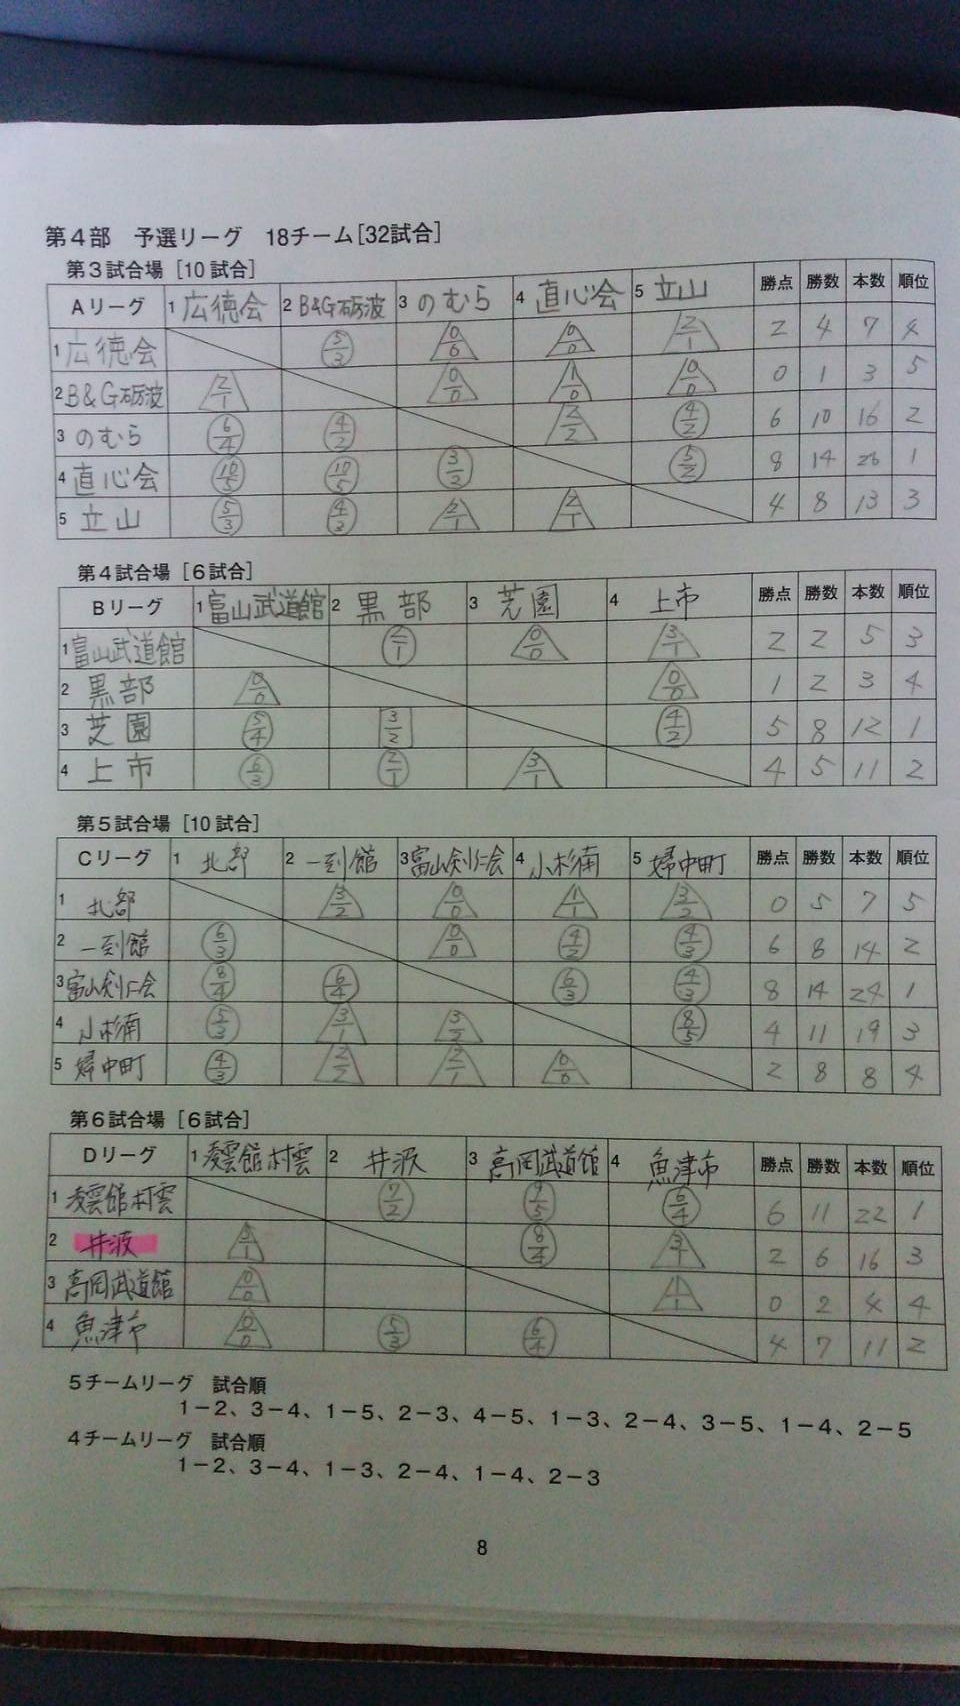 第4部 予選リーグ 18チーム[32試合]
第3試合場 [10試合]
Aリーグ 1 広徳会 2 B&G砺波 3 のむら 4 直心会 5 立山 勝点 勝数 本数 順位
1 広徳会 5/3 0/0 0/0 2/1 2 4 7 4
2 B&G砺波 2/1 0/0 1/0 0/0 0 1 3 5
3 のむら 6/4 4/2 2/2 4/2 6 10 16 2
4 直心会 10/5 10/5 3/2 5/2 8 14 28 1
5 立山 5/3 4/3 2/1 2/1 4 8 13 3
第4試合場 [6試合]
Bリーグ 1 富山武道館 2 黒部 3 芝園 4 上市 勝点 勝数 本数 順位
1 富山武道館 2/1 0/0 3/1 2 2 5 3
2 黒部 0/0 0/0 1 2 3 4
3 芝園 5/4 3/2 4/2 5 8 12 1
4 上市 6/3 2/1 3/1 4 5 11 2
第5試合場 [10試合]
Cリーグ 1 北部 2 一到館 3 富山剣仁会 4 小杉南 5 婦中町 勝点 勝数 本数 順位
1 北部 3/2 0/0 1/1 3/2 0 5 7 5
2 一到館 6/3 0/0 4/2 4/3 6 8 14 2
3 富山剣仁会 8/4 6/4 6/3 4/3 8 14 24 1
4 小杉南 5/3 3/1 3/2 8/5 4 11 19 3
5 婦中町 4/3 2/2 2/1 0/0 2 8 8 4
第6試合場 [6試合]
Dリーグ 1 凌雲館村雲 2 井波 3 高岡武道館 4 魚津市 勝点 勝数 本数 順位
1 凌雲館村雲 7/2 9/5 6/4 6 11 22 1
2 井波 5/1 8/4 3/1 2 6 16 3
3 高岡武道館 0/0 4/1 0 2 4 4
4 魚津市 0/0 5/3 6/4 4 7 11 2
5チームリーグ 試合順
1-2、3-4、1-5、2-3、4-5、1-3、2-4、3-5、1-4、2-5
4チームリーグ 試合順
1-2、3-4、1-3、2-4、1-4、2-3
8